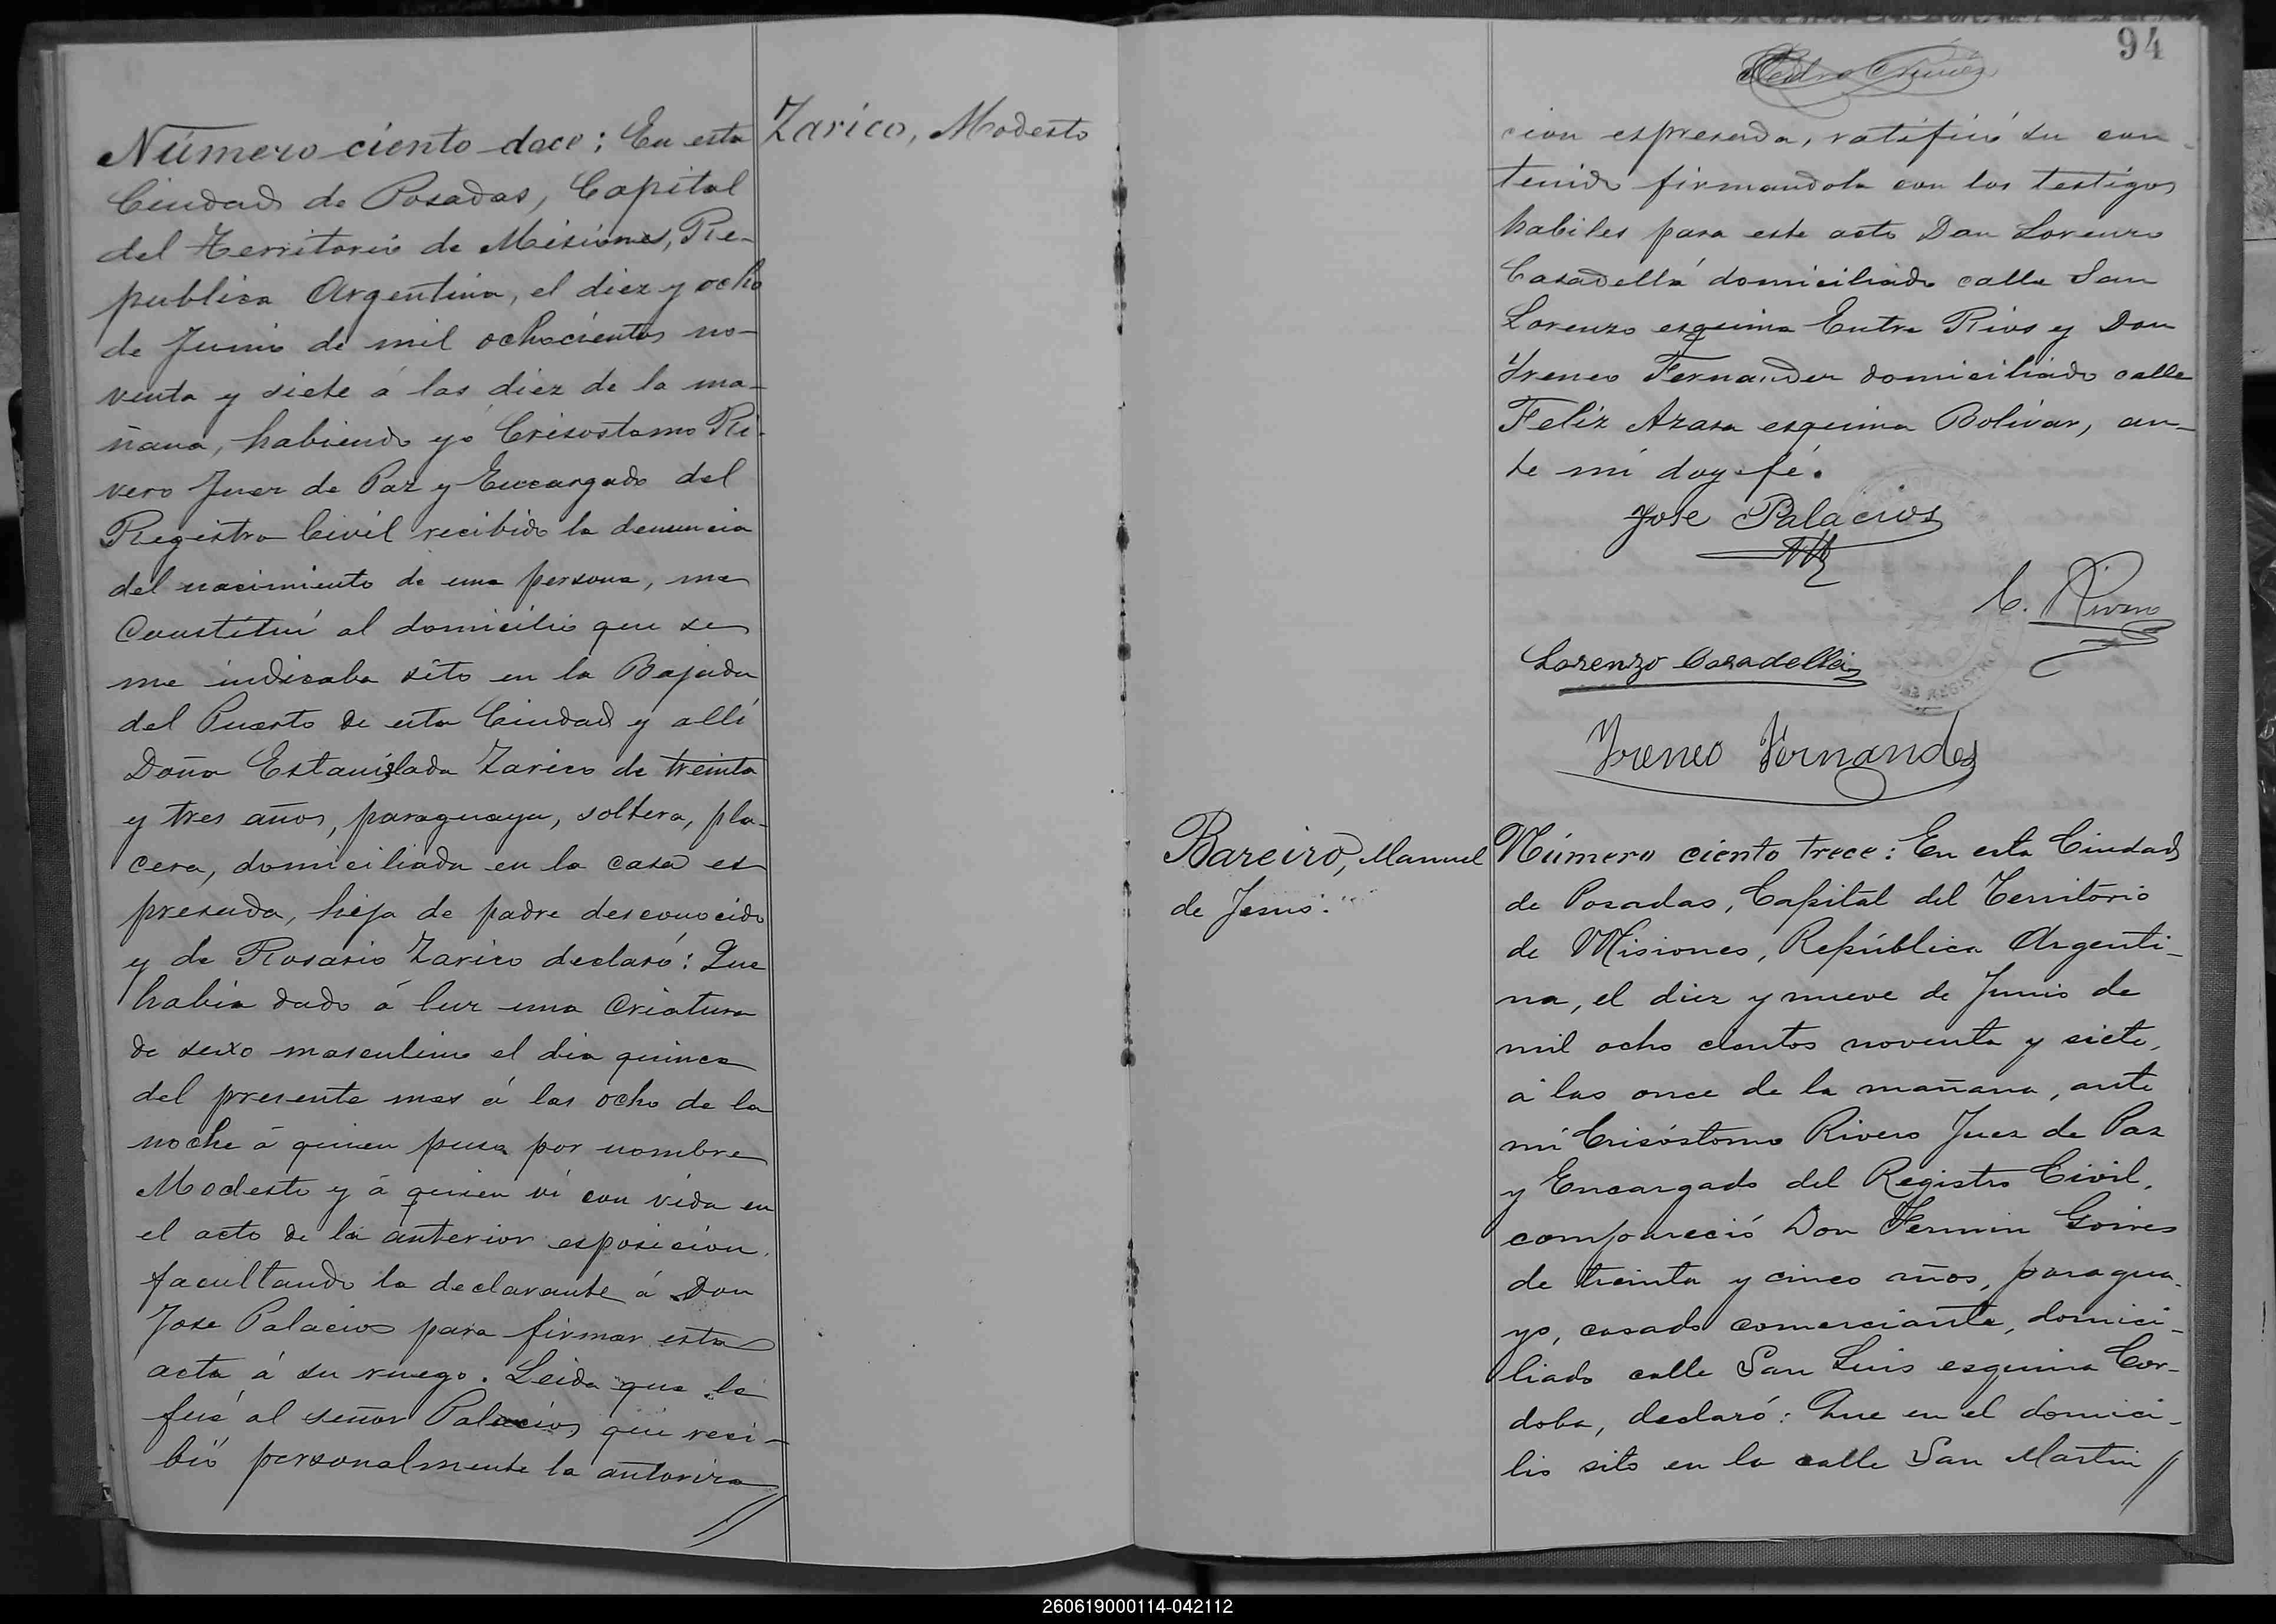 Zarico, Modesto
Número ciento doce: En esta
Ciudad de Posadas, Capital
del Territorio de Misiones, Re-
publica Argentina, el diez y ocho
de Junio de mil ochocientos no-
venta y siete á las diez de la ma-
ñana, habiendo yo Crisostomo Ri-
vero Juez de Paz y Encargado del
Registro Civil recibido la denuncia
del nacimiento de una persona, me
Constituí al domicilio que se
me indicaba sito en la Bajada
del Puerto de esta Ciudad y allí
Doña Estanislada Zarico de treinta
y tres años, paraguaya, soltera, pla-
cera, domiciliada en la casa es
presada, hija de padre desconocido
y de Rosario Zarico declaró: Que
habia dado á luz una Criatura
de sexo masculino el dia quince
del presente mes á las ocho de la
noche á quien puso por nombre
Modesto y á quien ví con vida en
el acto de la anterior esposición,
facultando la declarante á Don
Jose Palacios para firmar esta
acta á su ruego. Leida que le
fué al señor Palacios que reci-
bió personalmente la autoriza
94
cion espresada, ratificó su con-
tenido firmandola con los testigos
habiles para este acto Don Lorenzo
Casadellá domiciliado calle San
Lorenzo esquina Entre Rios y Don
Yreneo Fernandez domiciliado calle
Feliz Azara esquina Bolívar, an-
te mí doy fé.
Jose Palacios
C. Rivero
Lorenzo Casadellá
Yreneo Fernandes
Bareiro, Manuel
de Jesus.
Número ciento trece: En esta Ciudad
de Posadas, Capital del Territorio
de Misiones, República Argenti-
na, el diez y nueve de Junio de
mil ocho cientos noventa y siete,
á las once de la mañana, ante
mí Crisóstomo Rivero Juez de Paz
y Encargado del Registro Civil,
compareció Don Fermin Goires
de treinta y cinco años, paragua-
yo, casado comerciante, domici-
liado calle San Luis esquina Cor-
doba, declaró: Que en el domici-
lio sito en la calle San Martin //
260619000114-042112